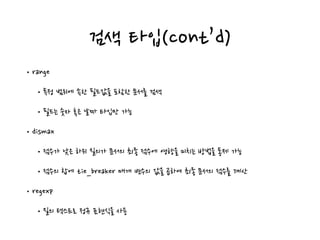 검색 타입(cont'd)
• range
• 특정 범위에 속한 필드값을 포함한 문서를 검색
• 필드는 숫자 혹은 날짜 타입만 가능
• dismax
• 점수가 낮은 하위 질의가 문서의 최종 점수에 영향을 미치는 방법을 통제 가능
• 점수의 합에 tie_breaker 매개 변수의 값을 곱하여 최종 문서의 점수를 계산
• regexp
• 질의 텍스트로 정규 표현식을 사용